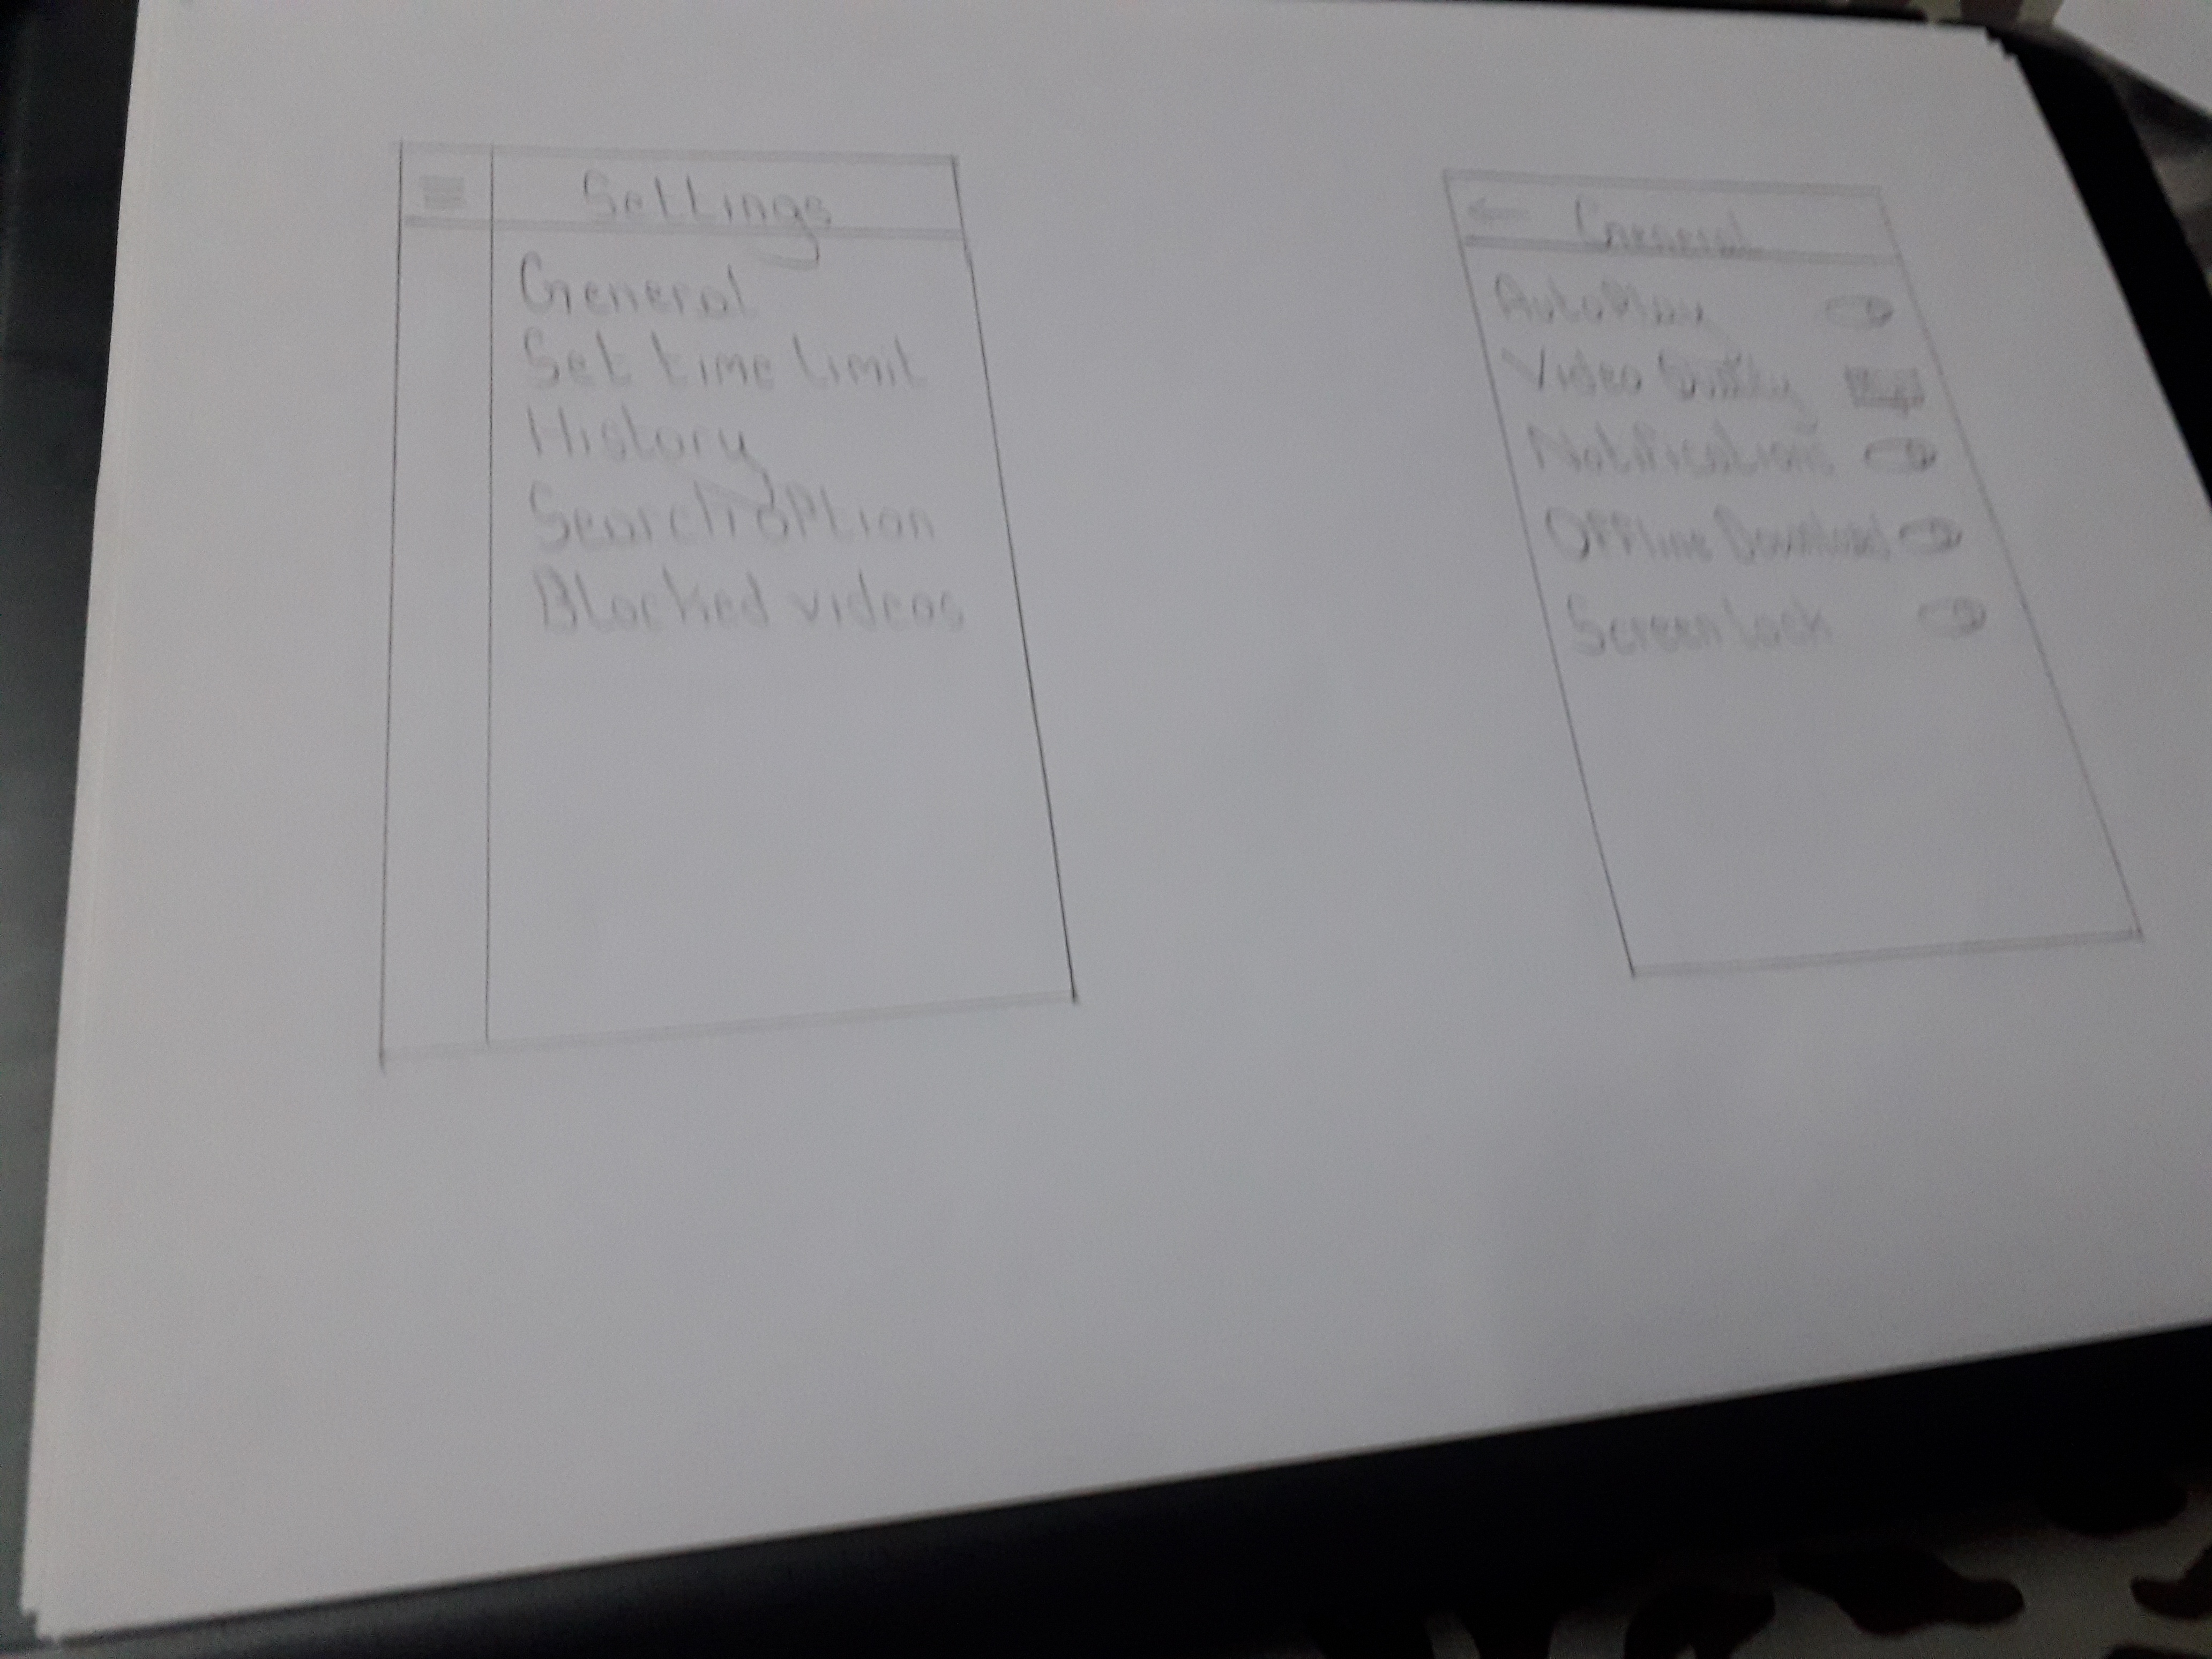 Settings
General
Set time limit
History
Search option
Blocked videos
General
AutoPlay
Video Quality
Notifications
Offline Download
Screen lock